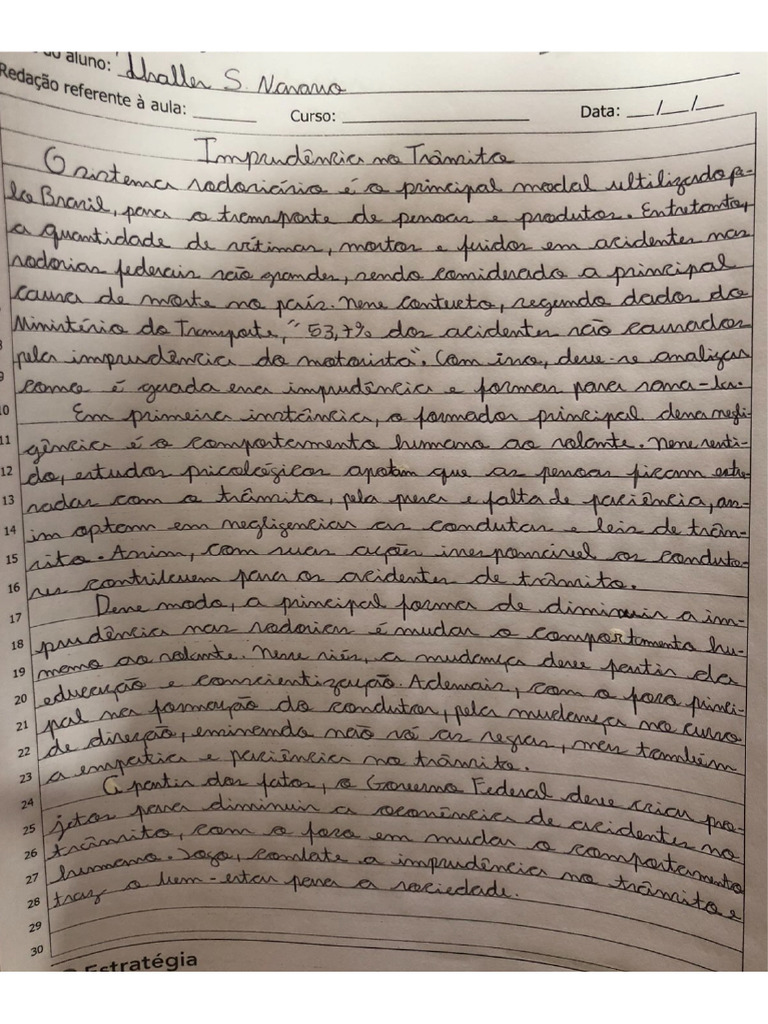 do aluno: Thaller S. Navarro
Redação referente à aula: ______ Curso: ______ Data: __/__/__
Imprudência no Trânsito
O sistema rodoviário é o principal modal ultilizado pe-
lo Brasil, para o transporte de pessoas e produtos. Entretanto,
a quantidade de vítimas, mortos e fuidos em acidentes nas
rodovias federais são grandes, sendo considerado a principal
causa de morte no país. Nesse contexto, segundo dados do
Ministério do Transporte, "53,7% dos acidentes são causados
8 pela imprudência do motorista". Com isso, deve-se analisar
9 como é gerada essa imprudência e formas para sana-la.
10 Em primeira instância, o formador principal dessa negli-
11 gência é o comportamento humano ao volante. Nesse senti-
12 do, estudos psicológicos apotam que as pessoas ficam estre-
13 sadas com o trânsito, pela pressa e falta de paciência, as-
14 sim optam em negligenciar as condutas e leis de trân-
15 sito. Assim, com suas ações inesponsável os conduto-
16 res contribuem para os acidentes de trânsito.
17 Desse modo, a principal forma de diminuir a im-
18 prudência nas rodovias é mudar o comportamento hu-
19 mano ao volante. Nesse viés, a mudança deve partir da
20 educação e conscientização. Ademais, com o foco princi-
21 pal na formação do condutor, pela mudança no curso
22 de direção, ensinando não só as regras, mas também
23 a empatia e paciência no trânsito.
24 A partir dos fatos, o Governo Federal deve criar pro-
25 jetos para diminuir a ocorrência de acidentes no
26 trânsito, com o foco em mudar o comportamento
27 humano. Logo, combate a imprudência no trânsito e
28 traz o bem-estar para a sociedade.
29
30
Estratégia